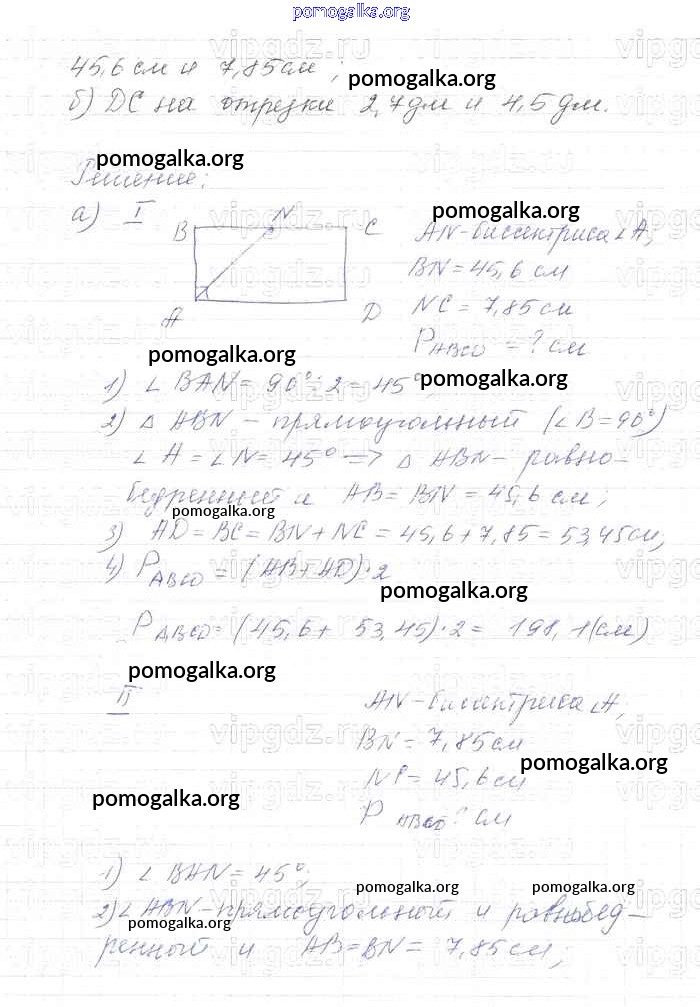 pomogalka.org
45,6 см и 7,85 см;
pomogalka.org
б) DC на отрезки 2,7 дм и 4,5 дм.
pomogalka.org
Решение:
pomogalka.org
а) I
B N C
A D
AN-биссектриса ∠A;
BN = 45,6 см
NC = 7,85 см
P ABCD = ? см
pomogalka.org
pomogalka.org
1) ∠ BAN = 90° : 2 = 45°;
2) △ ABN - прямоугольный (∠B = 90°)
∠A = ∠N = 45° => △ ABN - равно-
бедренный и AB = BN = 45,6 см;
pomogalka.org
3) AD = BC = BN + NC = 45,6 + 7,85 = 53,45 см;
4) P ABCD = (AB + AD) · 2
pomogalka.org
P ABCD = (45,6 + 53,45) · 2 = 198,1 (см)
pomogalka.org
II
AN-биссектриса ∠A;
BN = 7,85 см
NC = 45,6 см
P ABCD ? см
pomogalka.org
pomogalka.org
1) ∠ BAN = 45°;
pomogalka.org pomogalka.org
2) ∠ ABN - прямоугольный и равнобед-
pomogalka.org
ренный и AB = BN = 7,85 см;